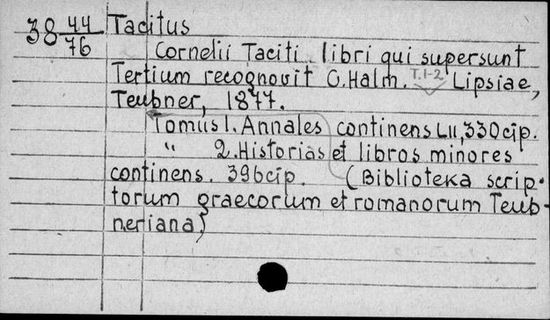 38 44/76 Tacitus
Cornelii Taciti libri qui supersunt
Tertium recognovit C. Halm. T.1-2 Lipsiae,
Teubner, 1877.
Tomus 1. Annales continens LII, 330 стр.
" 2. Historias et libros minores
continens. 396 стр. (Biblioteка scrip-
torum graecorum et romanorum Teub-
neriana)